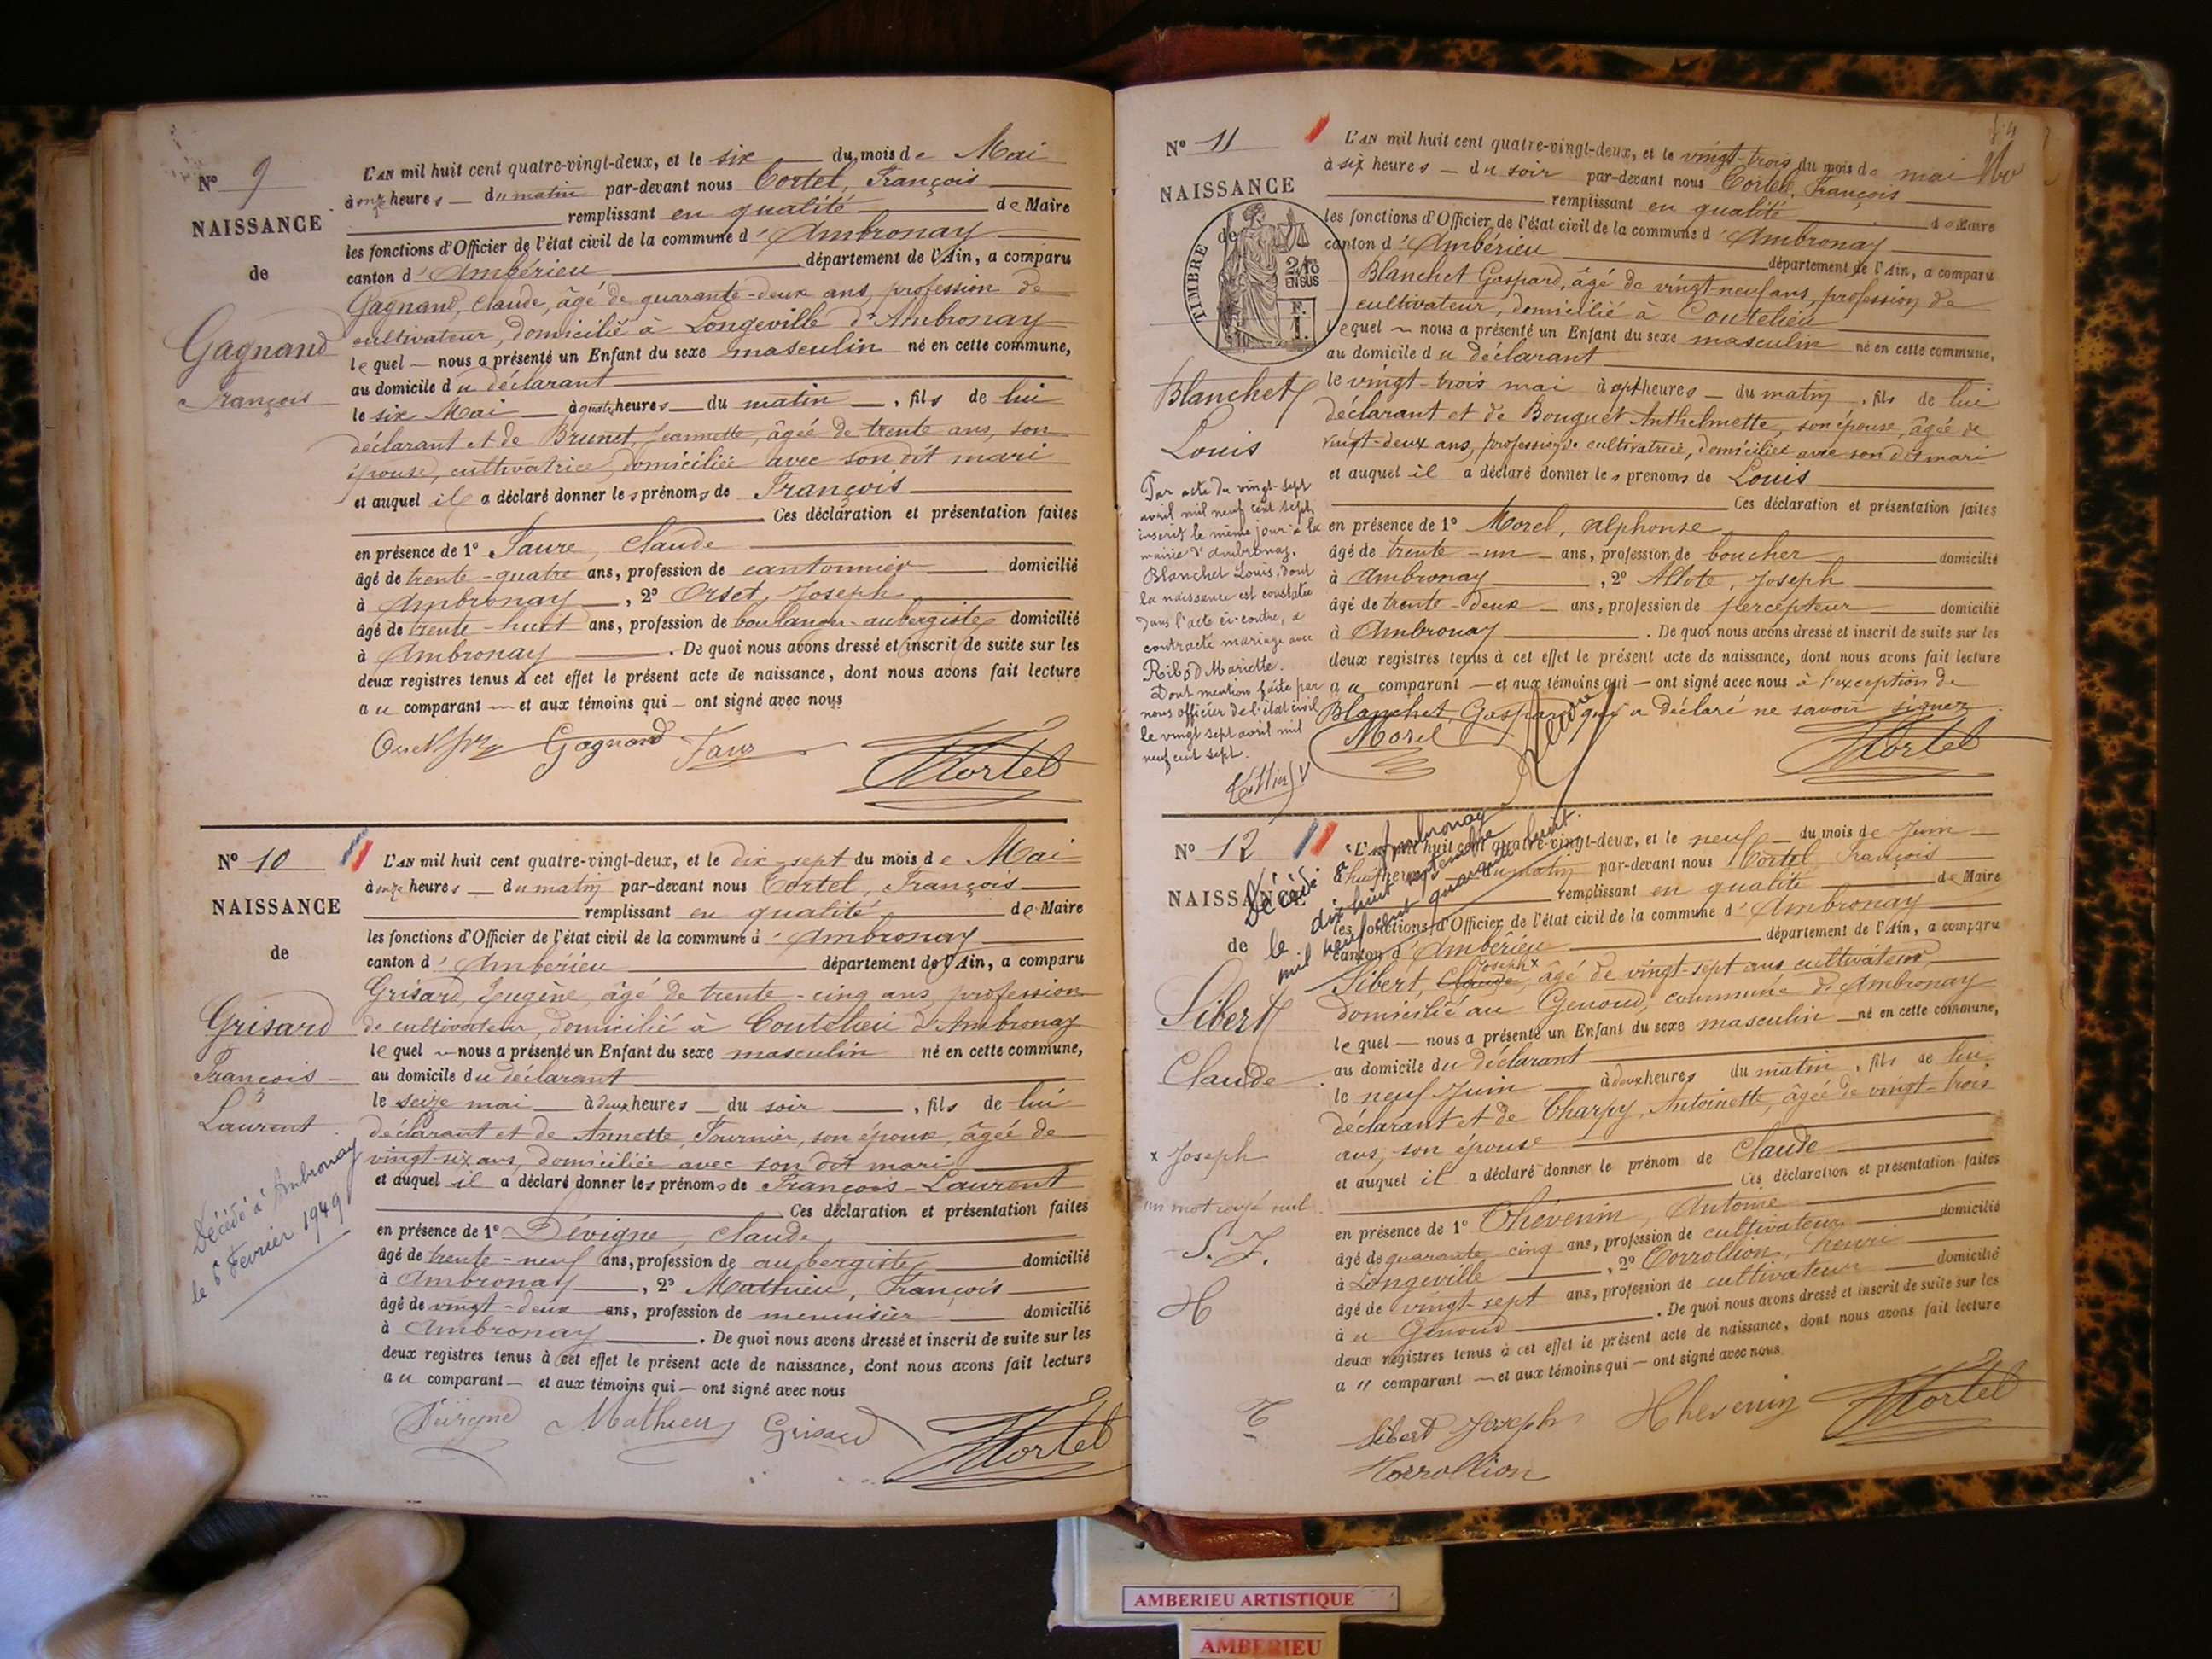 N° 9
NAISSANCE
de
Gagnand
François
L'AN mil huit cent quatre-vingt-deux, et le six du mois de Mai
à onze heures du matin par-devant nous Tortel, François
remplissant en qualité de Maire
les fonctions d'Officier de l'état civil de la commune d'Ambronay
canton d'Ambérieu département de l'Ain, a comparu
Gagnand, Claude, âgé de quarante-deux ans, profession de
cultivateur, domicilié à Longeville d'Ambronay
lequel nous a présenté un Enfant du sexe masculin né en cette commune,
au domicile du déclarant
le six Mai à quatre heures du matin, fils de lui
déclarant et de Brunet, Jeannette, âgée de trente ans, son
épouse, cultivatrice, domiciliée avec son dit mari
et auquel il a déclaré donner les prénoms de François
Ces déclaration et présentation faites
en présence de 1° Faure, Claude
âgé de trente-quatre ans, profession de cantonnier domicilié
à Ambronay, 2° Orset, Joseph
âgé de trente-huit ans, profession de boulanger-aubergiste domicilié
à Ambronay. De quoi nous avons dressé et inscrit de suite sur les
deux registres tenus à cet effet le présent acte de naissance, dont nous avons fait lecture
au comparant et aux témoins qui ont signé avec nous
Gagnand Faure Tortel
N° 10
NAISSANCE
de
Grisard
François
Laurent
Décédé à Ambronay
le 5 Février 1949
L'AN mil huit cent quatre-vingt-deux, et le dix-sept du mois de Mai
à onze heures du matin par-devant nous Tortel, François
remplissant en qualité de Maire
les fonctions d'Officier de l'état civil de la commune d'Ambronay
canton d'Ambérieu département de l'Ain, a comparu
Grisard, Eugène, âgé de trente-cinq ans, profession
de cultivateur, domicilié à Coutelieu d'Ambronay
lequel nous a présenté un Enfant du sexe masculin né en cette commune,
au domicile du déclarant
le seize mai à deux heures du soir, fils de lui
déclarant et de Annette Fournier, son épouse, âgée de
vingt-six ans, domiciliée avec son dit mari
et auquel il a déclaré donner les prénoms de François-Laurent
Ces déclaration et présentation faites
en présence de 1° Dévigne, Claude
âgé de trente-neuf ans, profession de aubergiste domicilié
à Ambronay, 2° Mathieu, François
âgé de vingt-deux ans, profession de menuisier domicilié
à Ambronay. De quoi nous avons dressé et inscrit de suite sur les
deux registres tenus à cet effet le présent acte de naissance, dont nous avons fait lecture
au comparant et aux témoins qui ont signé avec nous
Dévigne Mathieu Grisard Tortel
N° 11
NAISSANCE
de
TIMBRE
2/10
EN SUS
F.
1.
Blanchet
Louis
Par acte du vingt-sept
avril mil neuf cent sept,
inscrit le même jour à la
mairie d'Ambronay,
Blanchet Louis, dont
la naissance est constatée
dans l'acte ci-contre, a
contracté mariage avec
Ribod Mariette.
Dont mention faite par
nous officier de l'état civil
le vingt sept avril mil
neuf cent sept.
L'AN mil huit cent quatre-vingt-deux, et le vingt-trois du mois de mai
à six heures du soir par-devant nous Tortel, François
remplissant en qualité de Maire
les fonctions d'Officier de l'état civil de la commune d'Ambronay
canton d'Ambérieu département de l'Ain, a comparu
Blanchet Gaspard, âgé de vingt-neuf ans, profession de
cultivateur, domicilié à Coutelieu
lequel nous a présenté un Enfant du sexe masculin né en cette commune,
au domicile du déclarant
le vingt-trois mai à sept heures du matin, fils de lui
déclarant et de Bouguet Anthelmette, son épouse, âgée de
vingt-deux ans, profession de cultivatrice, domiciliée avec son dit mari
et auquel il a déclaré donner les prénoms de Louis
Ces déclaration et présentation faites
en présence de 1° Morel, Alphonse
âgé de trente-un ans, profession de boucher domicilié
à Ambronay, 2° Allote, Joseph
âgé de trente-deux ans, profession de percepteur domicilié
à Ambronay. De quoi nous avons dressé et inscrit de suite sur les
deux registres tenus à cet effet le présent acte de naissance, dont nous avons fait lecture
au comparant et aux témoins qui ont signé avec nous à l'exception de
Blanchet, Gaspard qui a déclaré ne savoir signer
Morel Tortel
N° 12
NAISSANCE
de
Sibert
Claude
x Joseph
un mot rayé nul
S. J.
H
T
Décédé à Ambronay
le dix huit septembre
mil neuf cent quarante huit.
L'AN mil huit cent quatre-vingt-deux, et le neuf du mois de Juin
à huit heures du matin par-devant nous Tortel, François
remplissant en qualité de Maire
les fonctions d'Officier de l'état civil de la commune d'Ambronay
canton d'Ambérieu département de l'Ain, a comparu
Joseph x
Sibert, Claude, âgé de vingt-sept ans cultivateur,
domicilié au Genoud, commune d'Ambronay
lequel nous a présenté un Enfant du sexe masculin né en cette commune,
au domicile du déclarant
le neuf Juin à deux heures du matin, fils de lui
déclarant et de Charpy, Antoinette, âgée de vingt-trois
ans, son épouse
et auquel il a déclaré donner le prénom de Claude
Ces déclaration et présentation faites
en présence de 1° Thévenin, Antoine
âgé de quarante cinq ans, profession de cultivateur domicilié
à Longeville, 2° Corrollion, henri
âgé de vingt-sept ans, profession de cultivateur domicilié
au Genoud. De quoi nous avons dressé et inscrit de suite sur les
deux registres tenus à cet effet le présent acte de naissance, dont nous avons fait lecture
au comparant et aux témoins qui ont signé avec nous
Sibert Joseph Thevenin Tortel
Corrollion
AMBERIEU ARTISTIQUE
AMBERIEU